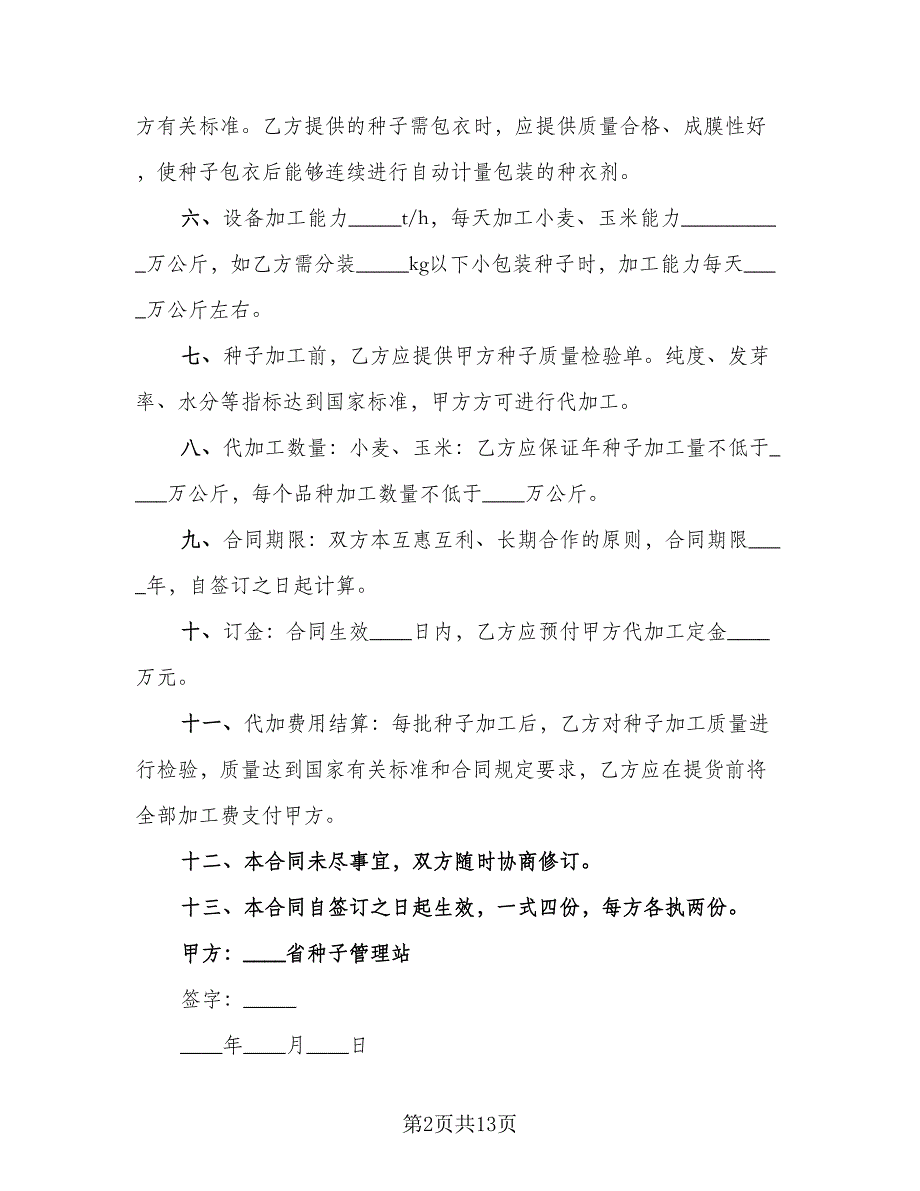 方有关标准。乙方提供的种子需包衣时，应提供质量合格、成膜性好
，使种子包衣后能够连续进行自动计量包装的种衣剂。
六、设备加工能力_____t/h，每天加工小麦、玉米能力_________
_万公斤，如乙方需分装_____kg以下小包装种子时，加工能力每天___
_万公斤左右。
七、种子加工前，乙方应提供甲方种子质量检验单。纯度、发芽
率、水分等指标达到国家标准，甲方方可进行代加工。
八、代加工数量：小麦、玉米：乙方应保证年种子加工量不低于_
___万公斤，每个品种加工数量不低于____万公斤。
九、合同期限：双方本互惠互利、长期合作的原则，合同期限___
_年，自签订之日起计算。
十、订金：合同生效____日内，乙方应预付甲方代加工定金____
万元。
十一、代加费用结算：每批种子加工后，乙方对种子加工质量进
行检验，质量达到国家有关标准和合同规定要求，乙方应在提货前将
全部加工费支付甲方。
十二、本合同未尽事宜，双方随时协商修订。
十三、本合同自签订之日起生效，一式四份，每方各执两份。
甲方：____省种子管理站
签字：_____
____年____月____日
第2页共13页